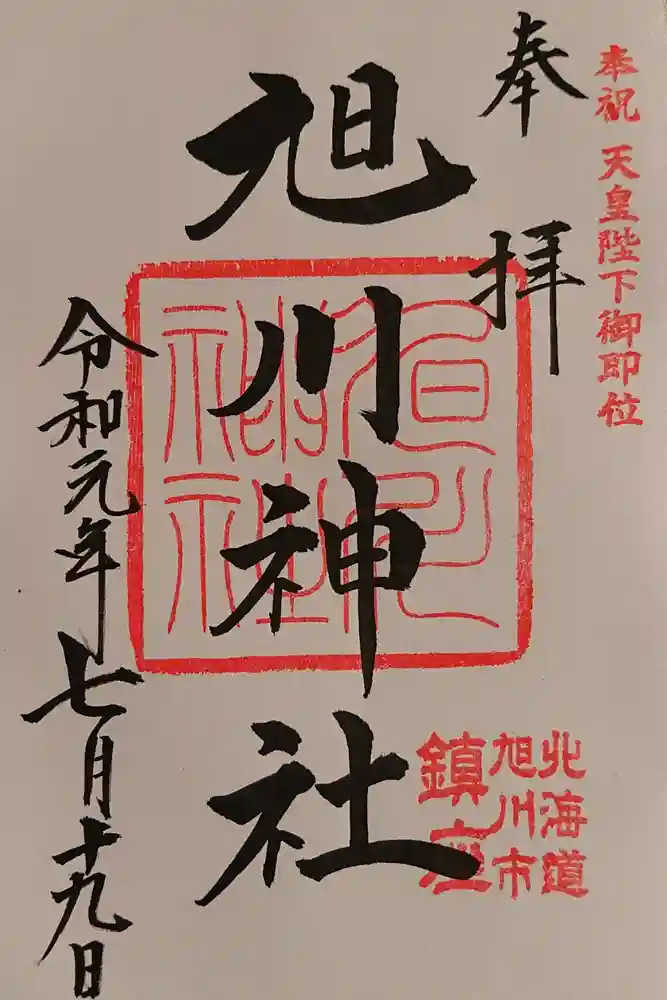 奉祝 天皇陛下御即位
奉拝
旭川神社
旭川神社
北海道
旭川市
鎮座
令和元年七月十九日